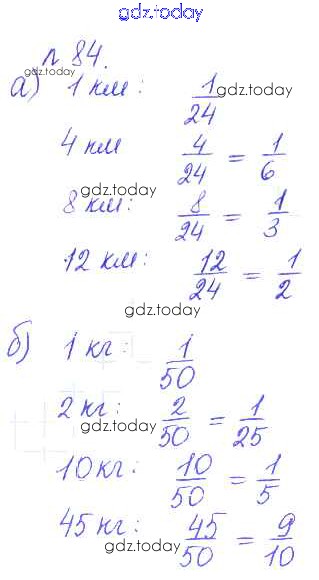 gdz.today
№ 84.
gdz.today
а) 1 км: 1/24 gdz.today
4 км 4/24 = 1/6
gdz.today
8 км: 8/24 = 1/3
gdz.today
12 км: 12/24 = 1/2
gdz.today
gdz.today
б) 1 кг: 1/50
2 кг: 2/50 = 1/25
gdz.today
10 кг: 10/50 = 1/5
gdz.today
45 кг: 45/50 = 9/10
gdz.today